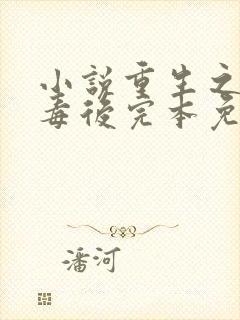 小说重生之
毒后完本免
潘河